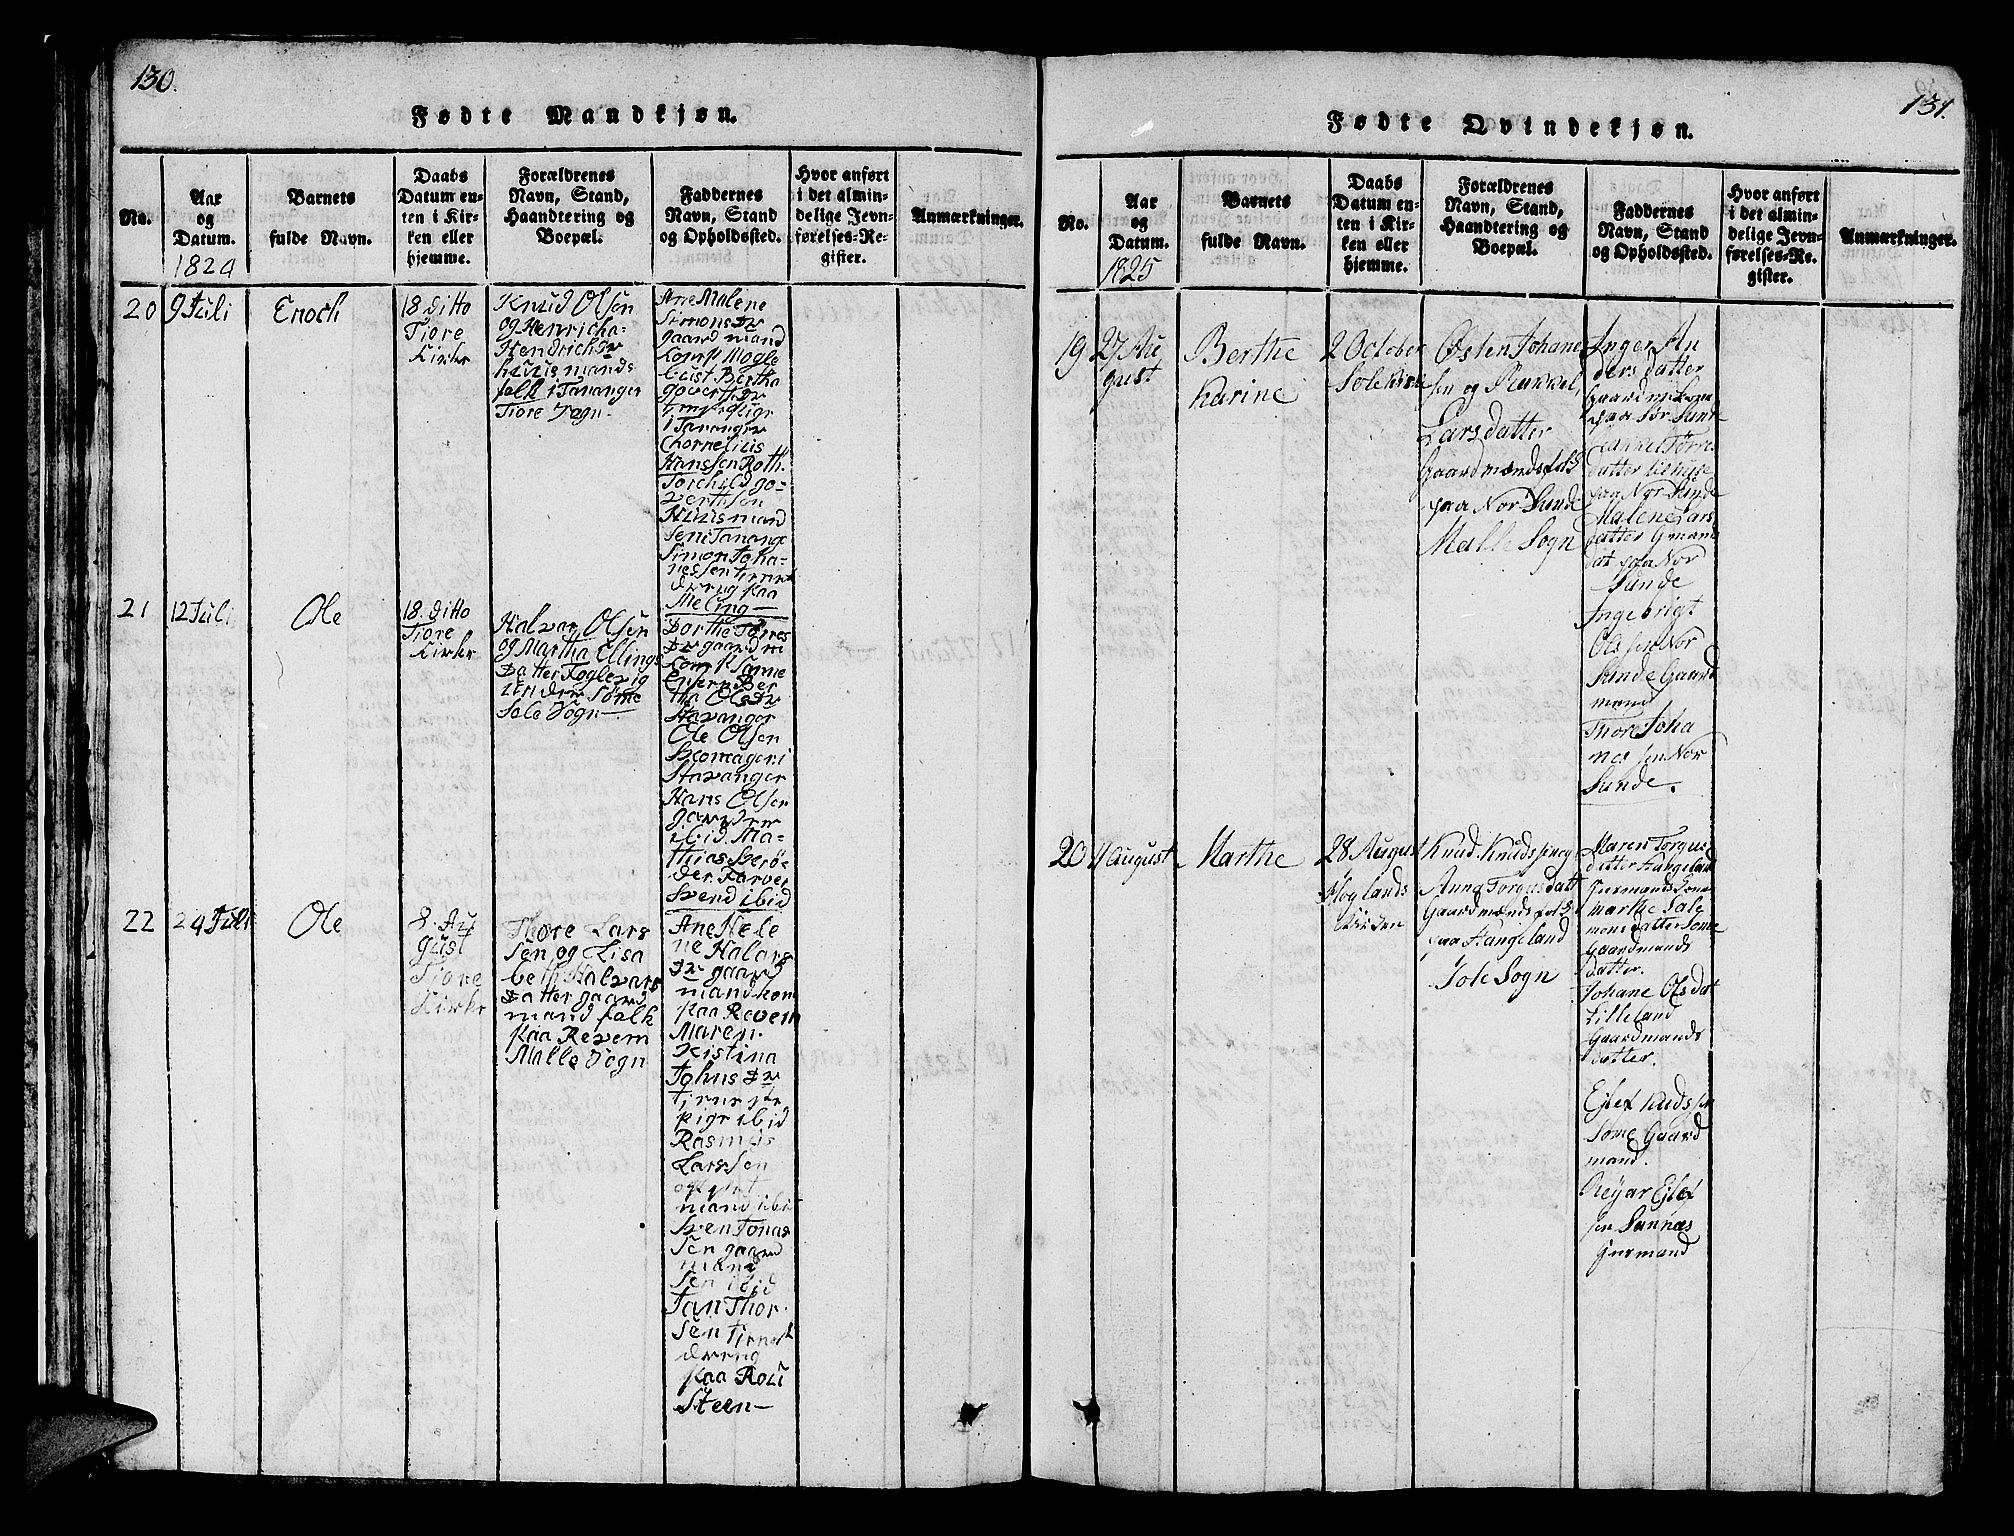 130.
Fødte Mandkjøn.
No.
Aar
og
Datum.
1824
Barnets
fulde Navn.
Daabs
Datum en-
ten i Kir-
ken eller
hjemme.
Forældrenes
Navn, Stand,
Haandtering og
Boepæl.
Faddernes
Navn, Stand
og Opholdssted.
Hvor anført
i det almin-
delige Jevn-
førelses-Re-
gister.
Anmærkninger.
20
9 Juli
Enoch
18 ditto
Tiore
Kirke
Knud Olsen
og Henricha
Hendrichdr
huusmands
folk i Tananger
Tiore Sogn
Ane Malene
Simonsdr
gaardmand
Kone p Mogle
bust Bertha
Govertsdr
i Tananger
Chornelius
Hanssen Roth.
Torchild go-
vertsen
Huusmand
Sen i Tanange
Simon Joha-
nessen tienest
dreng paa
Meling
21
12 Juli
Ole
18. ditto
Tiore
Kirke
Halvar Olsen
og Martha Ellings
Datter Foglevig
under Sømme
Sole Sogn
Dorthe Torres
Dr gaardm
Kone p Sømme
Enken Ber
tha Olsdr
Stavanger
Ole Olsen
Skomager i
Stavanger
Hans Olsen
garver
ibid. Ma-
thias Skrø-
der Farver
Svend ibid
22
24 Juli
Ole
8. Au
gust
Tiore
Kirke
Thore Lars
Sen og Lisa
beth Halvars
Datter gaard
mand folk
paa Revem
Malle Sogn
Ane Hele
ne Halars
Dr gaard
mand kone
paa Revem
Maren
Kistina
Johnsdr
tjeneste
pige ibid
Rasmus
Larssen
mand ibid
Sven Jonas
Sen gaard
mand
Sen ibid
Jan Thor
Sen tienest
dreng
paa Rou
Steen
131.
Fødte Qvindekjøn.
No.
Aar
og
Datum.
1825
Barnets
fulde Navn.
Daabs
Datum en-
ten i Kir-
ken eller
hjemme.
Forældrenes
Navn, Stand,
Haandtering og
Boepæl.
Faddernes
Navn, Stand
og Opholdssted.
Hvor anført
i det almin-
delige Jevn-
førelses-Re-
gister.
Anmærkninger.
19
27 Au
gust
Berthe
Karine
2 October
Sole Kirke
Østen Johane
sen og Rakkel
Lars datter
Gaardmændsfolk
paa Nor Sunde
Malle Sogn
Inger An
ders datter
Gaardm Kone
paa Sør Sunde
Tørres
datter
paa Nor Sunde
Malene Lars
datter Gmans
dat paa Nor
Sunde
Ingebrigt
Olssen Nor
Sunde Gaard
mand
Thore Joha
nessen Nor
Sunde.
20
11 August
Marthe
28 August
Hoglands
Kirken
Knud Knudssen og
Anna Torgus datt
Gaardmænds folk
paa Hangeland
Sole Sogn
Maren Torgus
datter Hangeland
Gurmands Kone
Marthe Sale
mons datter Sømme
Gaardmands
datter.
Johane Ols dat
Lilleland
Gaardmands
datter.
Ejlef Knudssen
Sømme Gaard
mand.
Reyar Ejlef
sen Sannæs
Gurmand